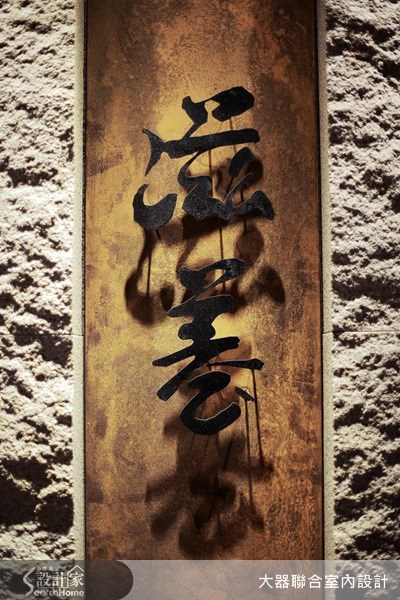 滋養
設計家
SearchHome
大器聯合室內設計